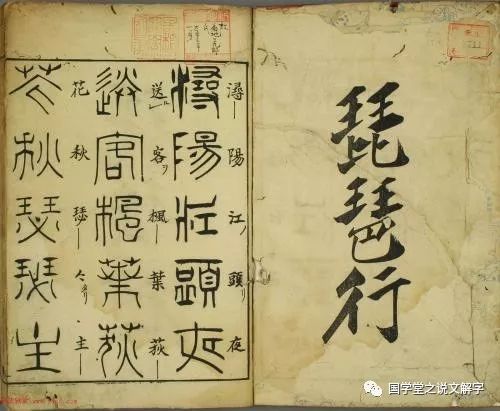 琵琶行
潯陽江頭夜
潯陽江頭夜
送客ヲ楓葉荻
送客楓葉荻
花秋瑟々主
花秋瑟瑟主
国学堂之说文解字